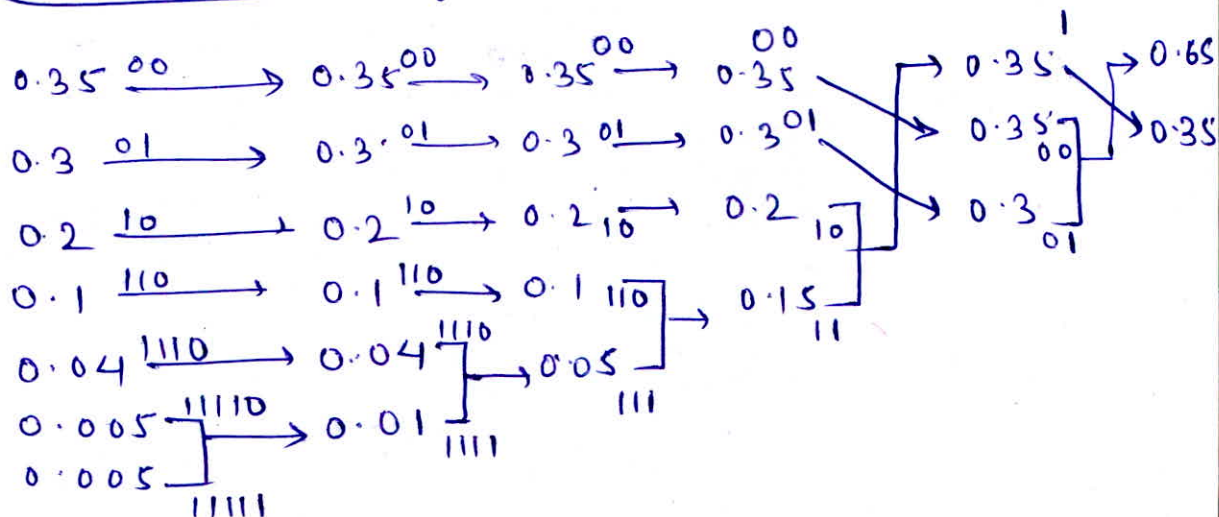 00 1
0.35 00 → 0.35 00 → 0.35 00 → 0.35 0.35 0.65
0.3 01 → 0.3. 01 → 0.3 01 → 0.3 01 0.35 00 0.35
0.2 10 → 0.2 10 → 0.2 10 → 0.2 10 0.3 01
0.1 110 → 0.1 110 → 0.1 110 → 0.15 11
0.04 1110 → 0.04 1110 → 0.05 111
0.005 11110 → 0.01 1111
0.005 11111